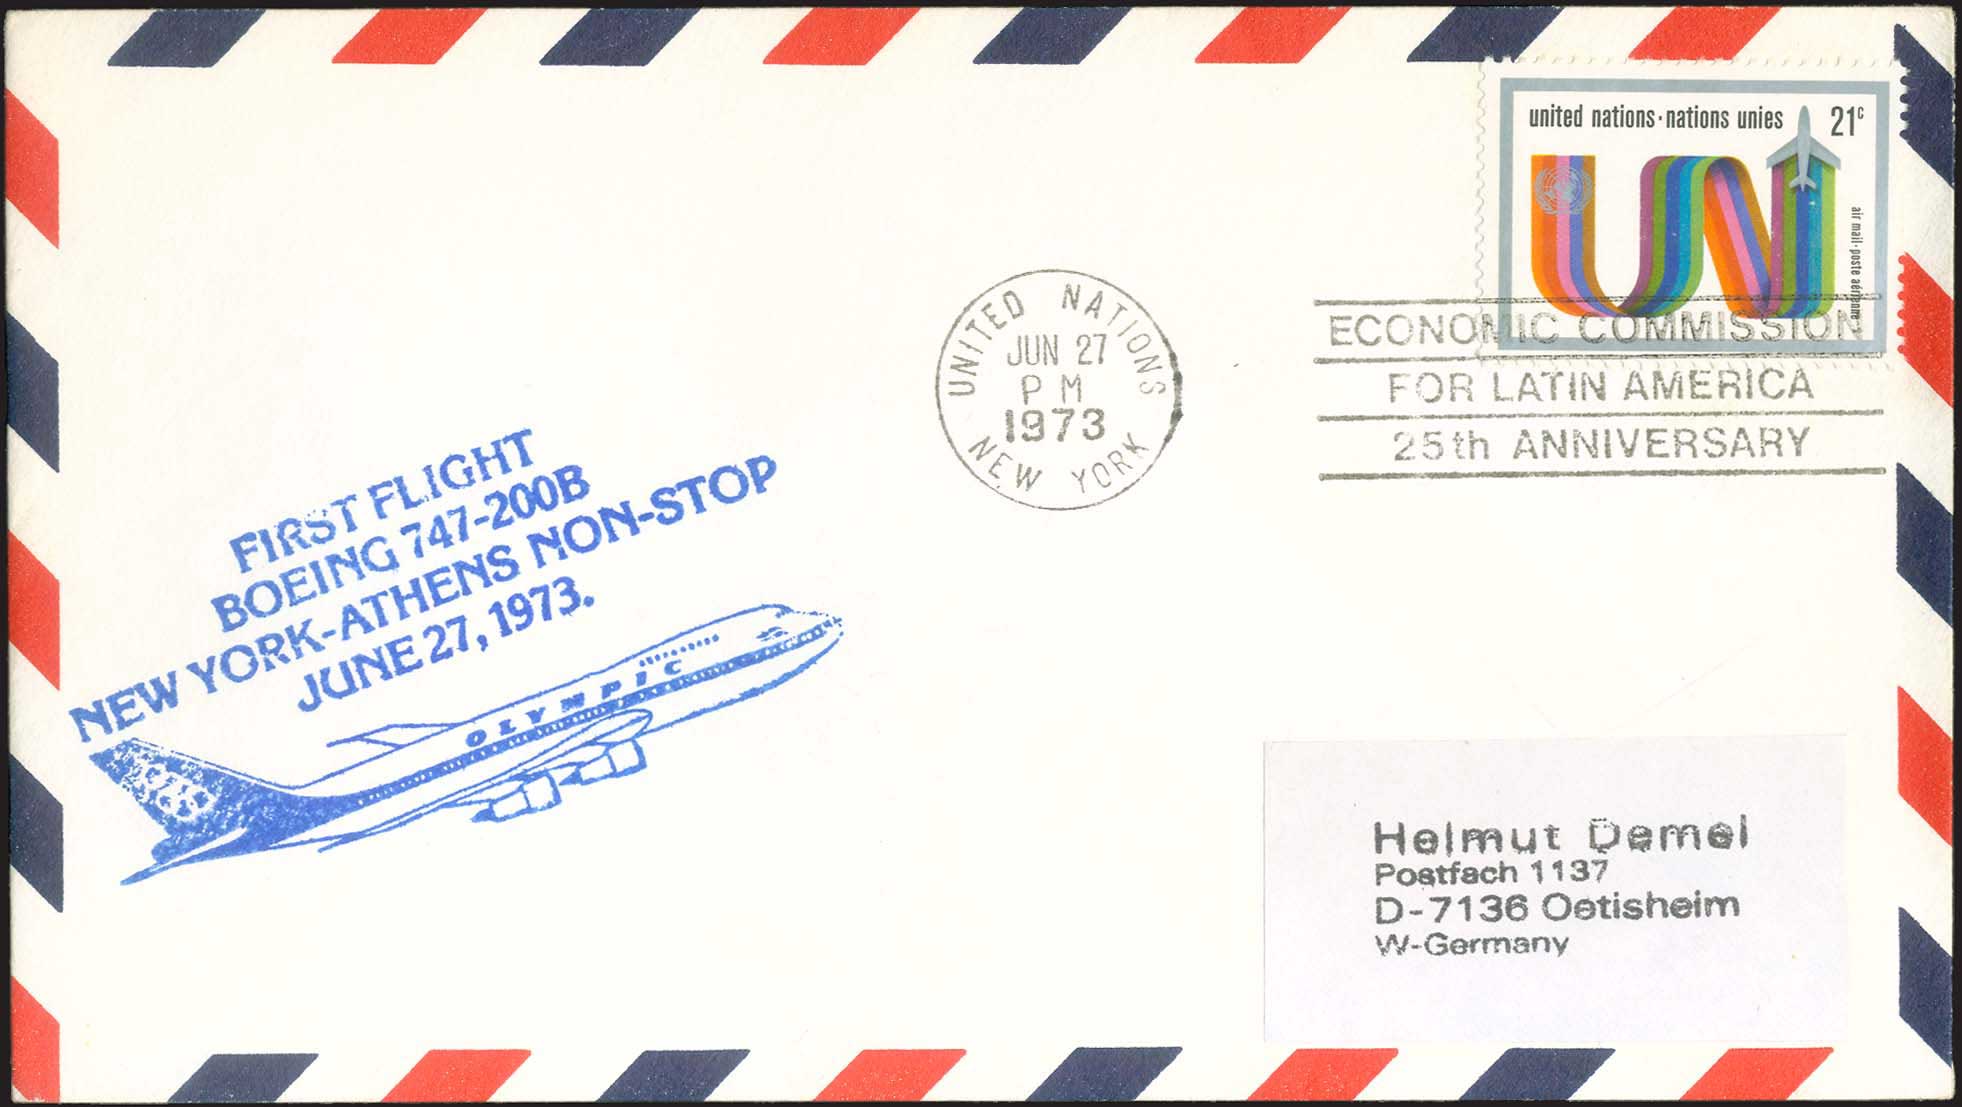 united nations · nations unies 21c
air mail · poste aérienne
UNITED NATIONS
JUN 27
PM
1973
NEW YORK
ECONOMIC COMMISSION
FOR LATIN AMERICA
25th ANNIVERSARY
FIRST FLIGHT
BOEING 747-200B
NEW YORK-ATHENS NON-STOP
JUNE 27, 1973.
OLYMPIC
Helmut Demel
Postfach 1137
D-7136 Oetisheim
W-Germany